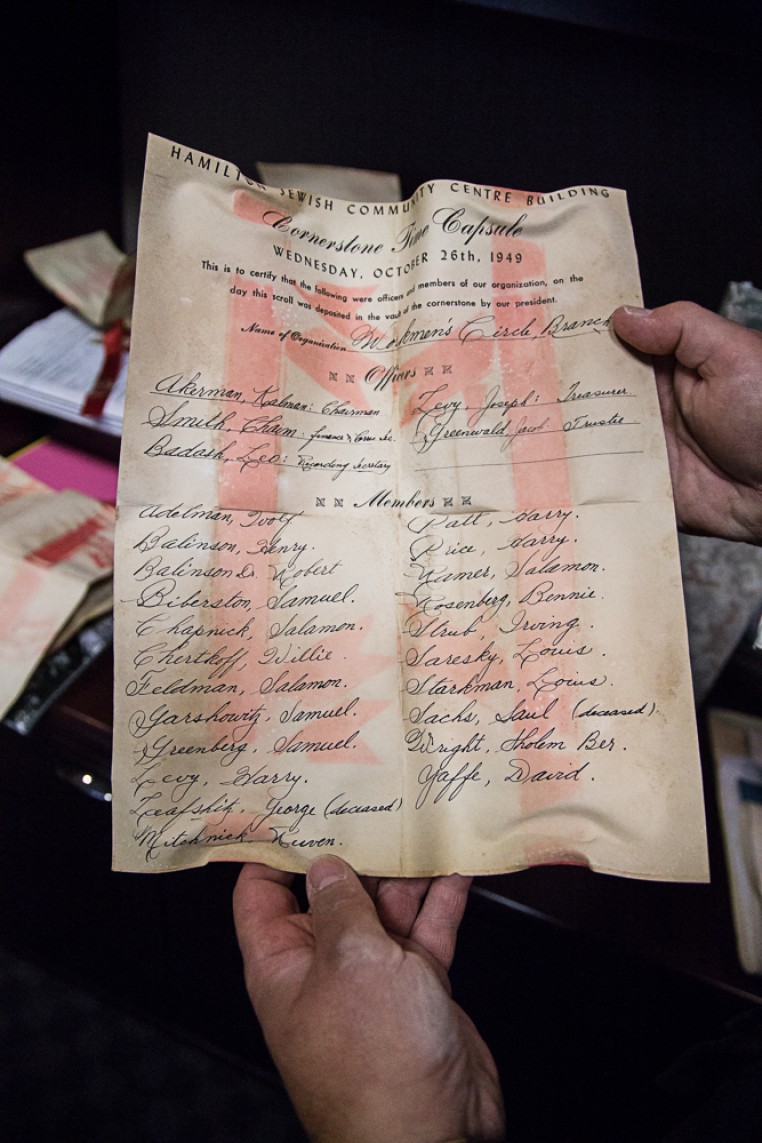 HAMILTON JEWISH COMMUNITY CENTRE BUILDING
Cornerstone Time Capsule
WEDNESDAY, OCTOBER 26th, 1949
This is to certify that the following were officers and members of our organization, on the
day this scroll was deposited in the vault of the cornerstone by our president.
Name of Organization Workmen's Circle, Branch
Officers
Akerman, Kalman: Chairman
Smith, Chaim: Finance
Badash, Leo: Recording Secretary
Levy, Joseph: Treasurer.
Greenwald, Jacob: Trustee
Members
Adelman, Wolf.
Balinson, Henry.
Balinson Dr. Robert
Biberston, Samuel.
Chapnick, Salamon.
Chertkoff, Willie.
Feldman, Salamon.
Garshowitz, Samuel.
Greenberg, Samuel.
Levy, Harry.
Leafshitz, George (deceased)
Mitchnick, Reuven.
Patt, Harry.
Price, Harry.
Ramer, Salamon.
Rosenberg, Bennie.
Strub, Irving.
Saresky, Louis.
Starkman, Louis.
Sachs, Saul (deceased).
Wright, Sholem Ber.
Yaffe, David.